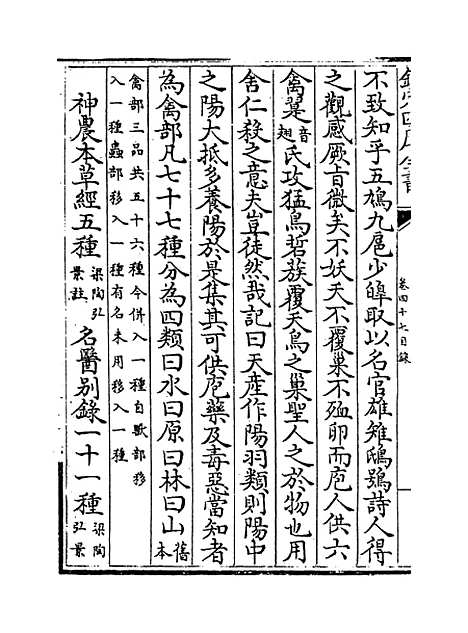 欽定四庫全書
卷四十七目錄
不致知乎五鳩九扈少皥取以名官雄雉鴟鴞詩人得
之觀感厥旨微矣不妖夭不覆巢不殈卵而庖人供六
禽翨音翅氏攻猛鳥硩蔟覆夭鳥之巢聖人之於物也用
舍仁殺之意夫豈徒然哉記曰天産作陽羽類則陽中
之陽大抵多養陽於是集其可供庖藥及毒惡當知者
為禽部凡七十七種分為四類曰水曰原曰林曰山舊本
禽部三品共五十六種今併入一種自獸部移
入一種蟲部移入一種有名未用移入一種
神農本草經五種梁陶弘景註名醫別錄一十一種梁陶弘景